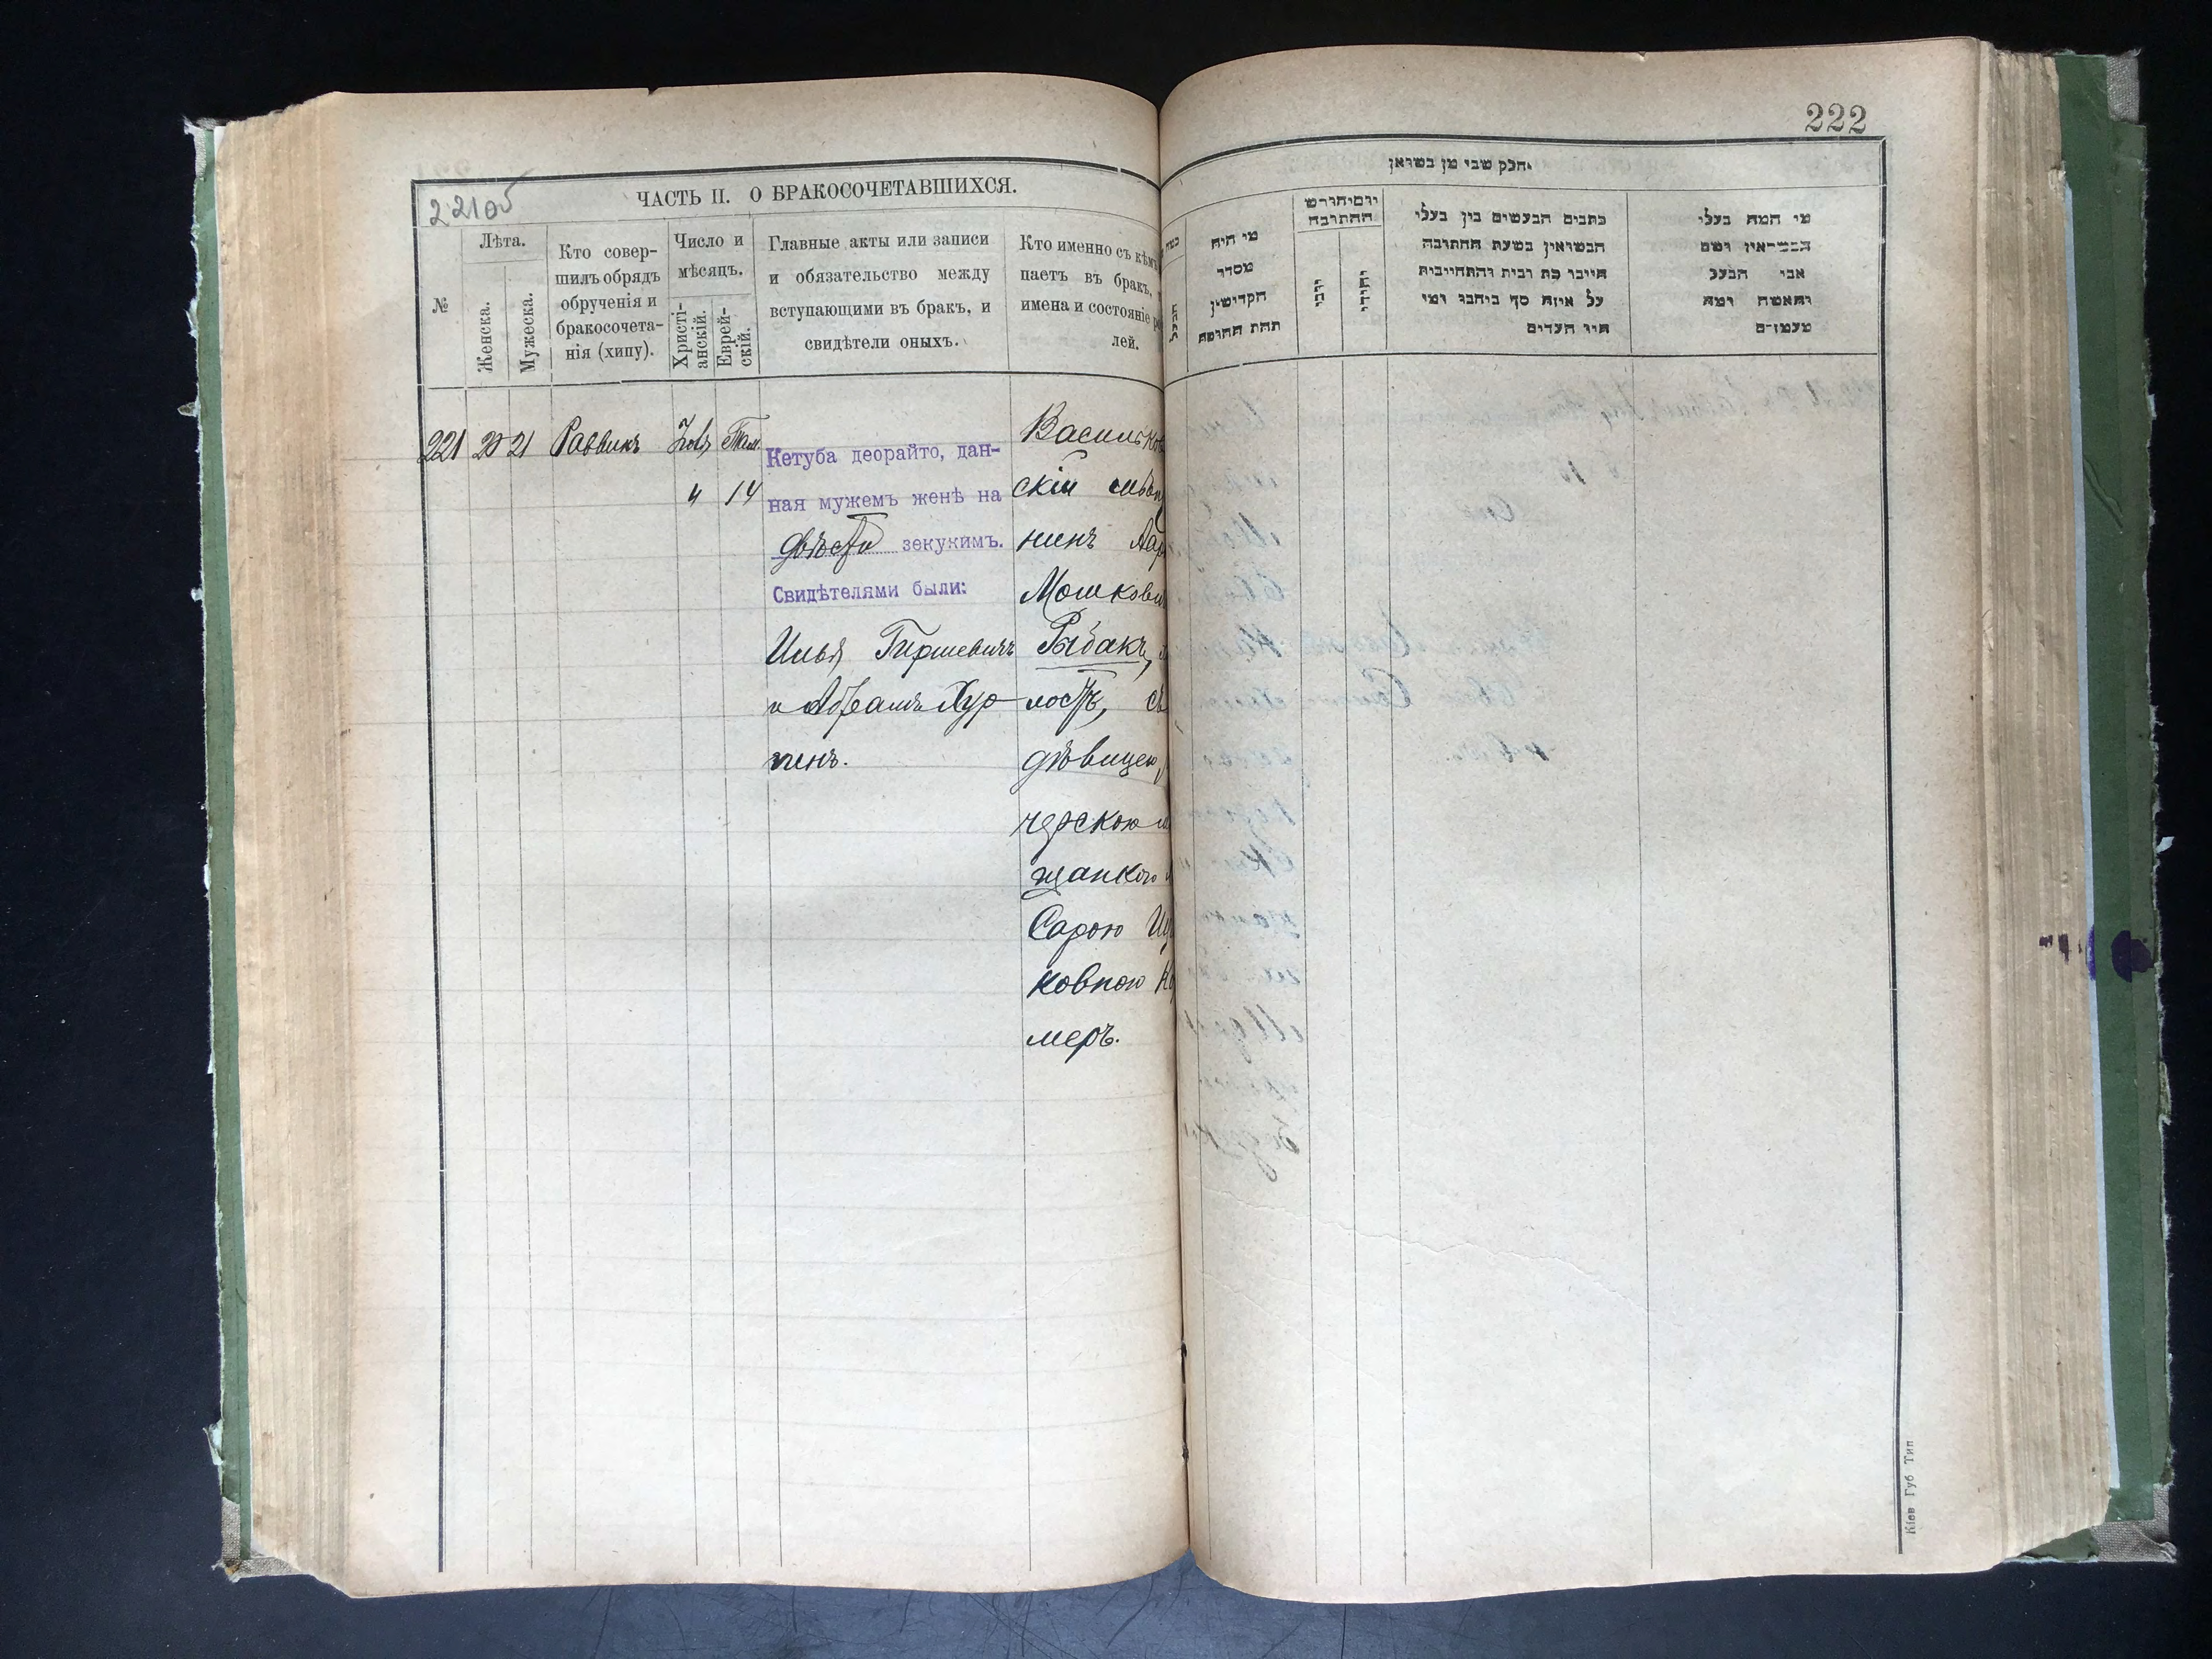 221об
ЧАСТЬ II. О БРАКОСОЧЕТАВШИХСЯ.
№
Лѣта.
Женска.
Мужеска.
Кто совер-
шилъ обрядъ
обрученія и
бракосочета-
нія (хипу).
Число и
мѣсяцъ.
Христі-
анскій.
Еврей-
скій.
Главные акты или записи
и обязательство между
вступающими въ бракъ, и
свидѣтели оныхъ.
Кто именно съ кѣмъ
паетъ въ бракъ,
имена и состояніе
лей.
221 20 21 Раввинъ Іюля Там.
4 14
Кетуба деорайто, дан-
ная мужемъ женѣ на
двѣсти зекукимъ.
Свидѣтелями были:
Илья Гиршевичъ
и Абрамъ
Васильков
скій мѣщ
нинъ Аар
Мошкови
Рыбакъ,
лостъ, съ
дѣвицею,
черскою
щанкою
Сарою Иц
ковною
меръ.
222
חלק שני מן נשואין
מי היה
מסדר
הקדושין
תחת החופה
יום וחודש
החתונה
כתבים הנעשים בין בעלי
הנשואין בשעת החתונה
על איזה סך כיחבו ומי
היו העדים
מי המה בעלי
הנשואין ושם
אבי הבעל
והאשה ומה
מעמדם
Кіев Губ Тип